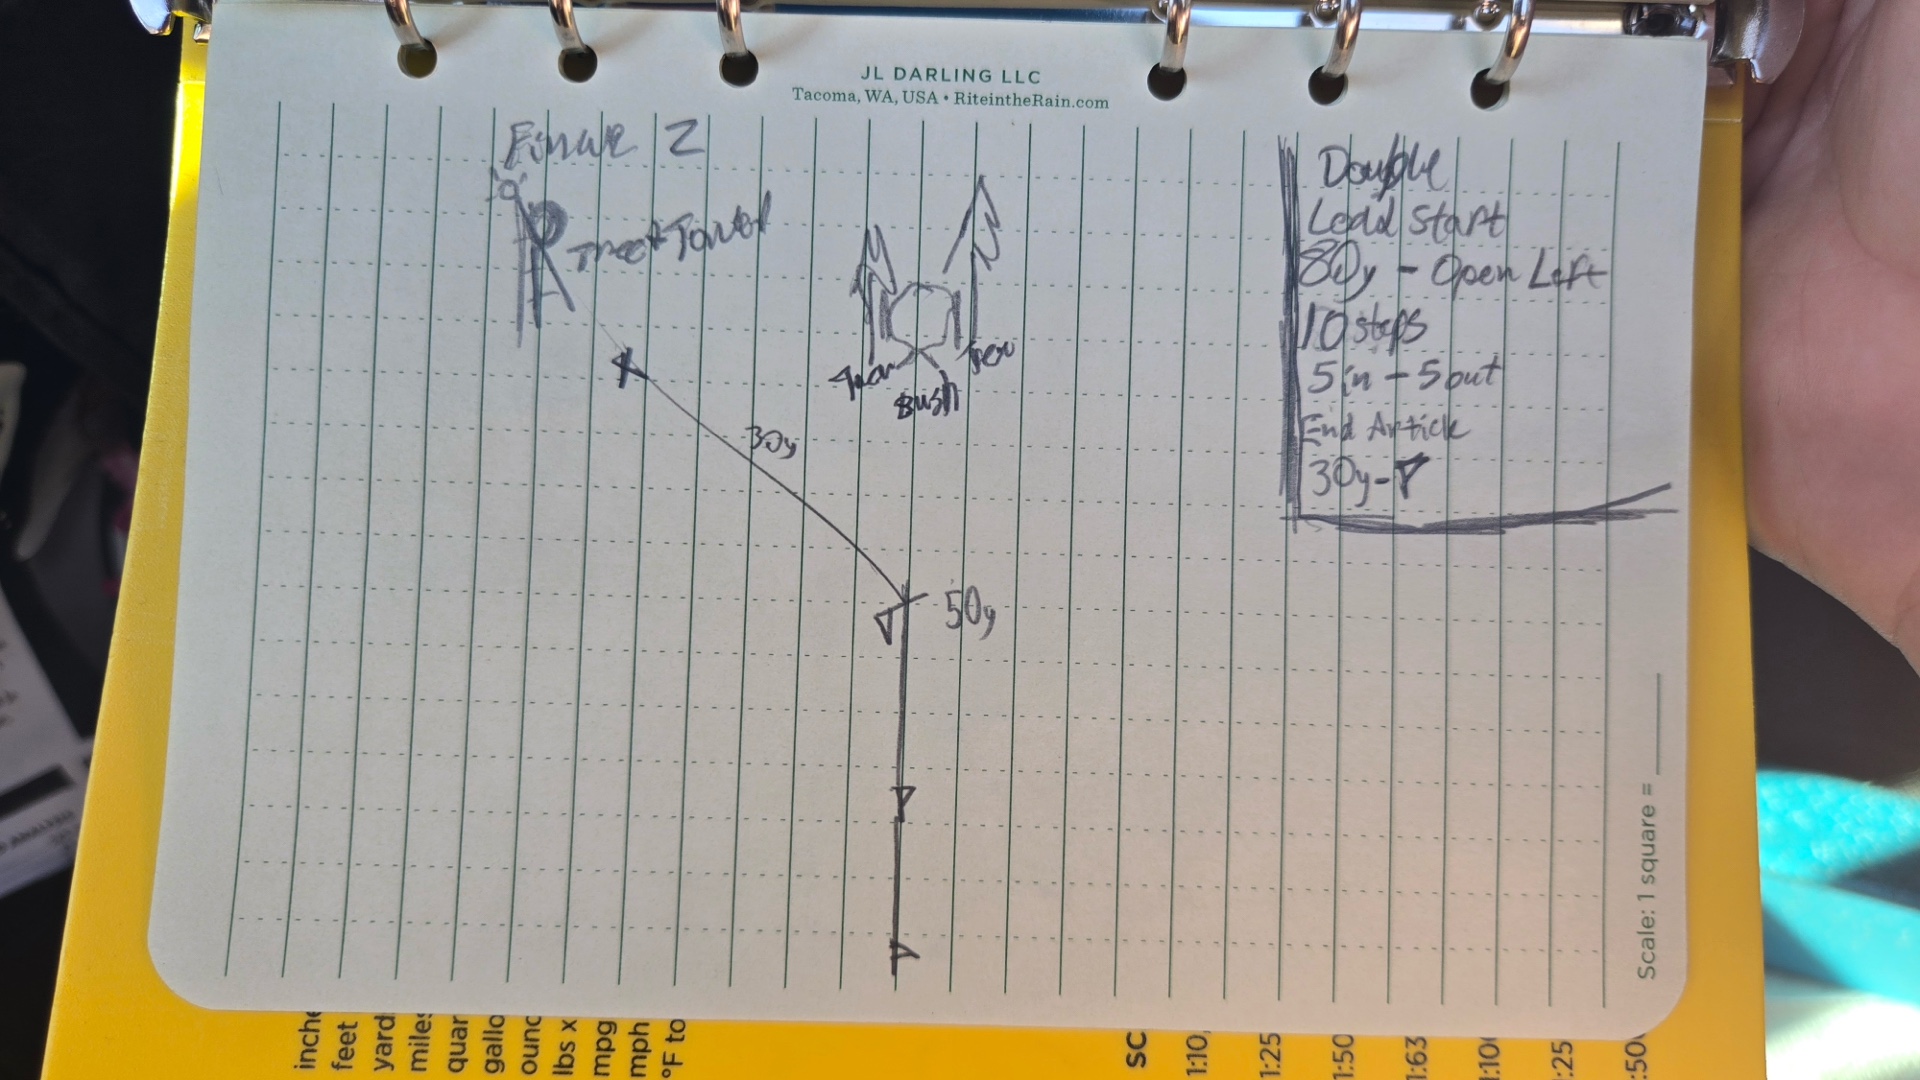 JL DARLING LLC
Tacoma, WA, USA • RiteintheRain.com
2
Tree + Tower
Tree
Bush
Tree
30y
50y
Double
Lead Start
80y - Open Left
10 steps
5 in - 5 out
End Article
30y -
Scale: 1 square =
inche
feet
yard
miles
quar
gallo
ounc
lbs x
mpg
mph
°F to
SC
1:10,
1:25
1:50
1:63
1:100
:25
:500